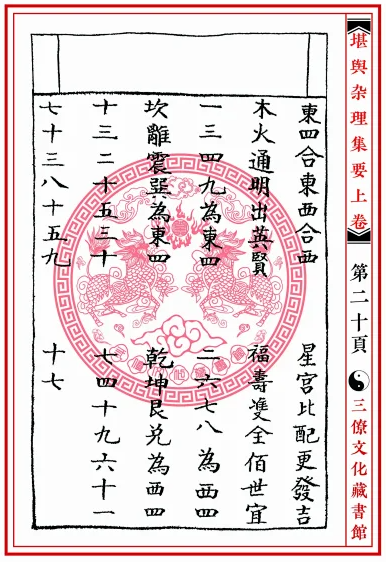 堪舆杂理集要上卷
第二十頁
三僚文化藏書館
東四合東西合西 星宮比配更發吉
木火通明出英賢 福壽雙全佰世宜
一三四九為東四 二六七八為西四
坎離震巽為東四 乾坤艮兌為西四
十三二十五三十 七四十九六十一
七十三八十五九 十七